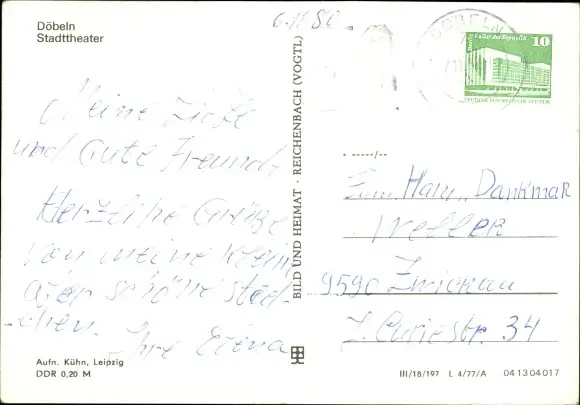 Döbeln
Stadttheater
6.11.80
DÖBELN
Palast der Republik
10
DEUTSCHE DEMOKRATISCHE REPUBLIK
Meine Liebe
und Gute Freund
Herzliche Grüße
von meine klein
aber schöne stad-
-chen.
Ihre Elena
BILD UND HEIMAT · REICHENBACH (VOGTL)
· -----/--
Zum Harn. Dankmar
Weller
9590 Zwickau
J. Curiestr. 34
Aufn. Kühn, Leipzig
DDR 0,20 M
III/18/197 L 4/77/A 041304017